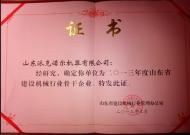 证 书
山东派克诺尔机器有限公司：
经研究，确定你单位为二〇一三年度山东省
建设机械行业骨干企业，特发此证。
山东省建设机械行业管理办公室
二〇一三年